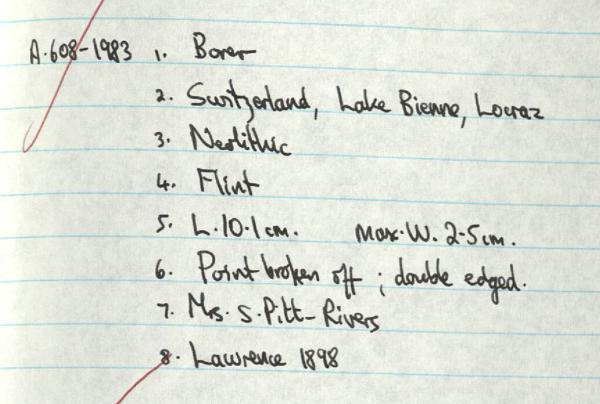 A.608-1983 1. Borer
2. Switzerland, Lake Bienne, Locraz
3. Neolithic
4. Flint
5. L. 10.1 cm. Max. W. 2.5 cm.
6. Point broken off ; double edged.
7. Mrs. S. Pitt-Rivers
8. Lawrence 1898